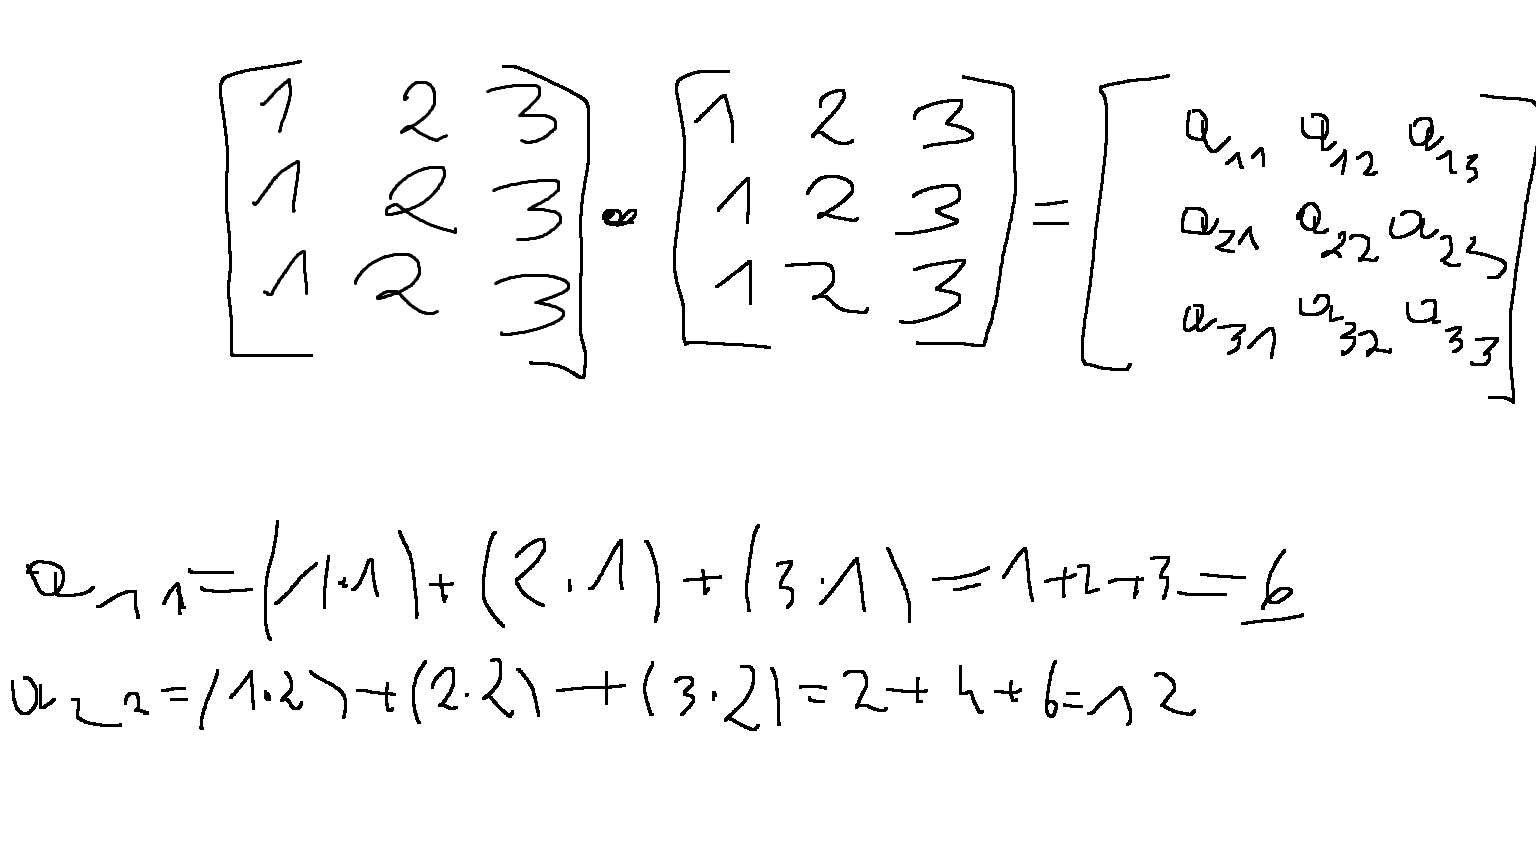 [1 2 3] · [1 2 3] = [a11 a12 a13]
[1 2 3] [1 2 3] [a21 a22 a23]
[1 2 3] [1 2 3] [a31 a32 a33]
a11 = (1·1) + (2·1) + (3·1) = 1+2+3 = 6
a22 = (1·2) + (2·2) + (3·2) = 2+4+6 = 12